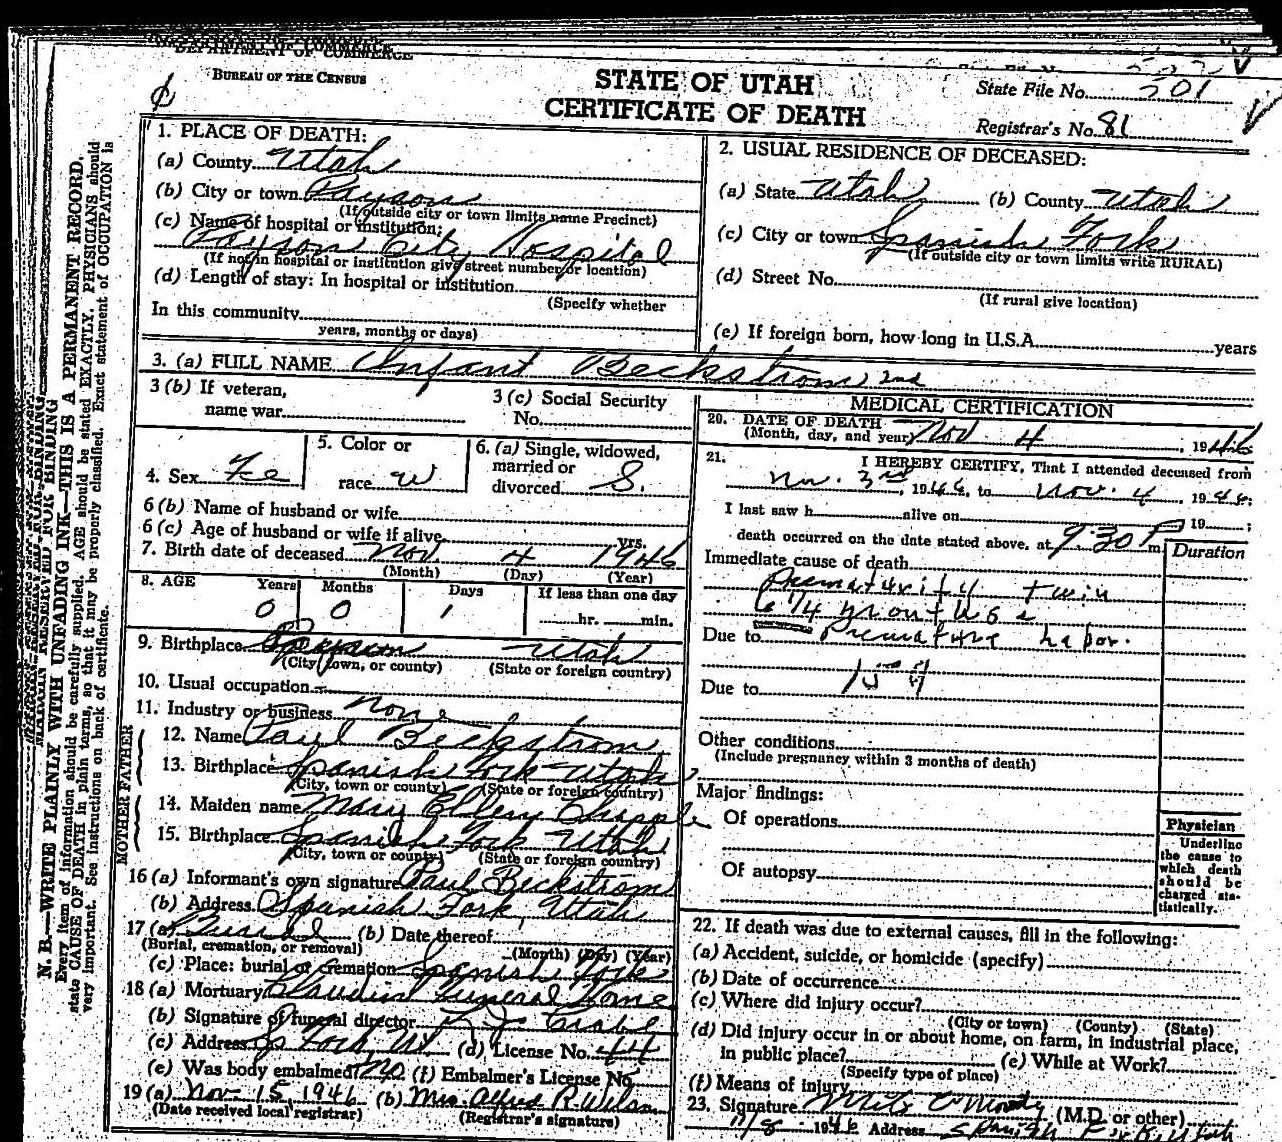 DEPARTMENT OF COMMERCE
BUREAU OF THE CENSUS
STATE OF UTAH
CERTIFICATE OF DEATH
State File No. 201
Registrar's No. 81
1. PLACE OF DEATH:
(a) County Utah
(b) City or town Payson
(If outside city or town limits name Precinct)
(c) Name of hospital or institution:
Payson City Hospital
(If not in hospital or institution give street number or location)
(d) Length of stay: In hospital or institution
(Specify whether
In this community
years, months or days)
2. USUAL RESIDENCE OF DECEASED:
(a) State Utah (b) County Utah
(c) City or town Spanish Fork
(If outside city or town limits write RURAL)
(d) Street No.
(If rural give location)
(e) If foreign born, how long in U.S.A. years
3. (a) FULL NAME Infant Beckstrom 2nd
3 (b) If veteran,
name war
3 (c) Social Security
No.
4. Sex Fe
5. Color or
race W
6. (a) Single, widowed,
married or
divorced S.
6 (b) Name of husband or wife
6 (c) Age of husband or wife if alive yrs.
7. Birth date of deceased Nov. 4 1946
(Month) (Day) (Year)
8. AGE Years Months Days If less than one day
0 0 1 hr. min.
9. Birthplace Payson Utah
(City, town, or county) (State or foreign country)
10. Usual occupation
11. Industry or business none
FATHER
12. Name Paul Beckstrom
13. Birthplace Spanish Fork Utah
(City, town or county) (State or foreign country)
MOTHER
14. Maiden name Mary Ellen Chapple
15. Birthplace Spanish Fork Utah
(City, town or county) (State or foreign country)
16 (a) Informant's own signature Paul Beckstrom
(b) Address Spanish Fork, Utah
17 (a) Burial (b) Date thereof
(Burial, cremation, or removal) (Month) (Day) (Year)
(c) Place: burial or cremation Spanish Fork
18 (a) Mortuary Claudin Funeral Home
(b) Signature of funeral director
(c) Address Sp Fork, Ut. (d) License No. 44
(e) Was body embalmed? No (f) Embalmer's License No.
19 (a) Nov- 15, 1946 (b) Mrs. Alfred R. Wilson
(Date received local registrar) (Registrar's signature)
MEDICAL CERTIFICATION
20. DATE OF DEATH
(Month, day, and year) Nov 4, 1946
21. I HEREBY CERTIFY, That I attended deceased from
Nov. 3rd, 1946, to Nov. 4, 1946;
I last saw h alive on 19 ;
death occurred on the date stated above, at 9:30 P m.
Duration
Immediate cause of death
Prematurity twin
6 1/4
Due to Premature labor.
Due to
Other conditions
(Include pregnancy within 3 months of death)
Major findings:
Of operations
Of autopsy
Physician
Underline
the cause to
which death
should be
charged sta-
tistically.
22. If death was due to external causes, fill in the following:
(a) Accident, suicide, or homicide (specify)
(b) Date of occurrence
(c) Where did injury occur?
(City or town) (County) (State)
(d) Did injury occur in or about home, on farm, in industrial place,
in public place? (e) While at Work?
(Specify type of place)
(f) Means of injury
23. Signature Moody (M.D. or other)
11/8 1946 Address Spanish Fork Utah
N. B.—WRITE PLAINLY WITH UNFADING INK—THIS IS A PERMANENT RECORD.
Every item of information should be carefully supplied. AGE should be stated EXACTLY. PHYSICIANS should
state CAUSE OF DEATH in plain terms, so that it may be properly classified. Exact statement of OCCUPATION is
very important. See instructions on back of certificate.
MARGIN RESERVED FOR BINDING